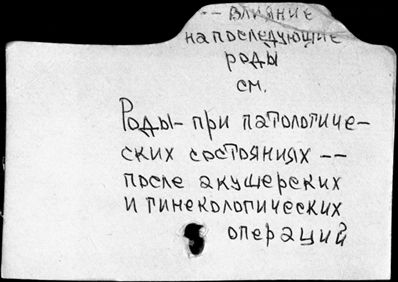 -- влияние
на последующие
роды
см.
Роды - при патологиче-
ских состояниях --
после акушерских
и гинекологических
операций